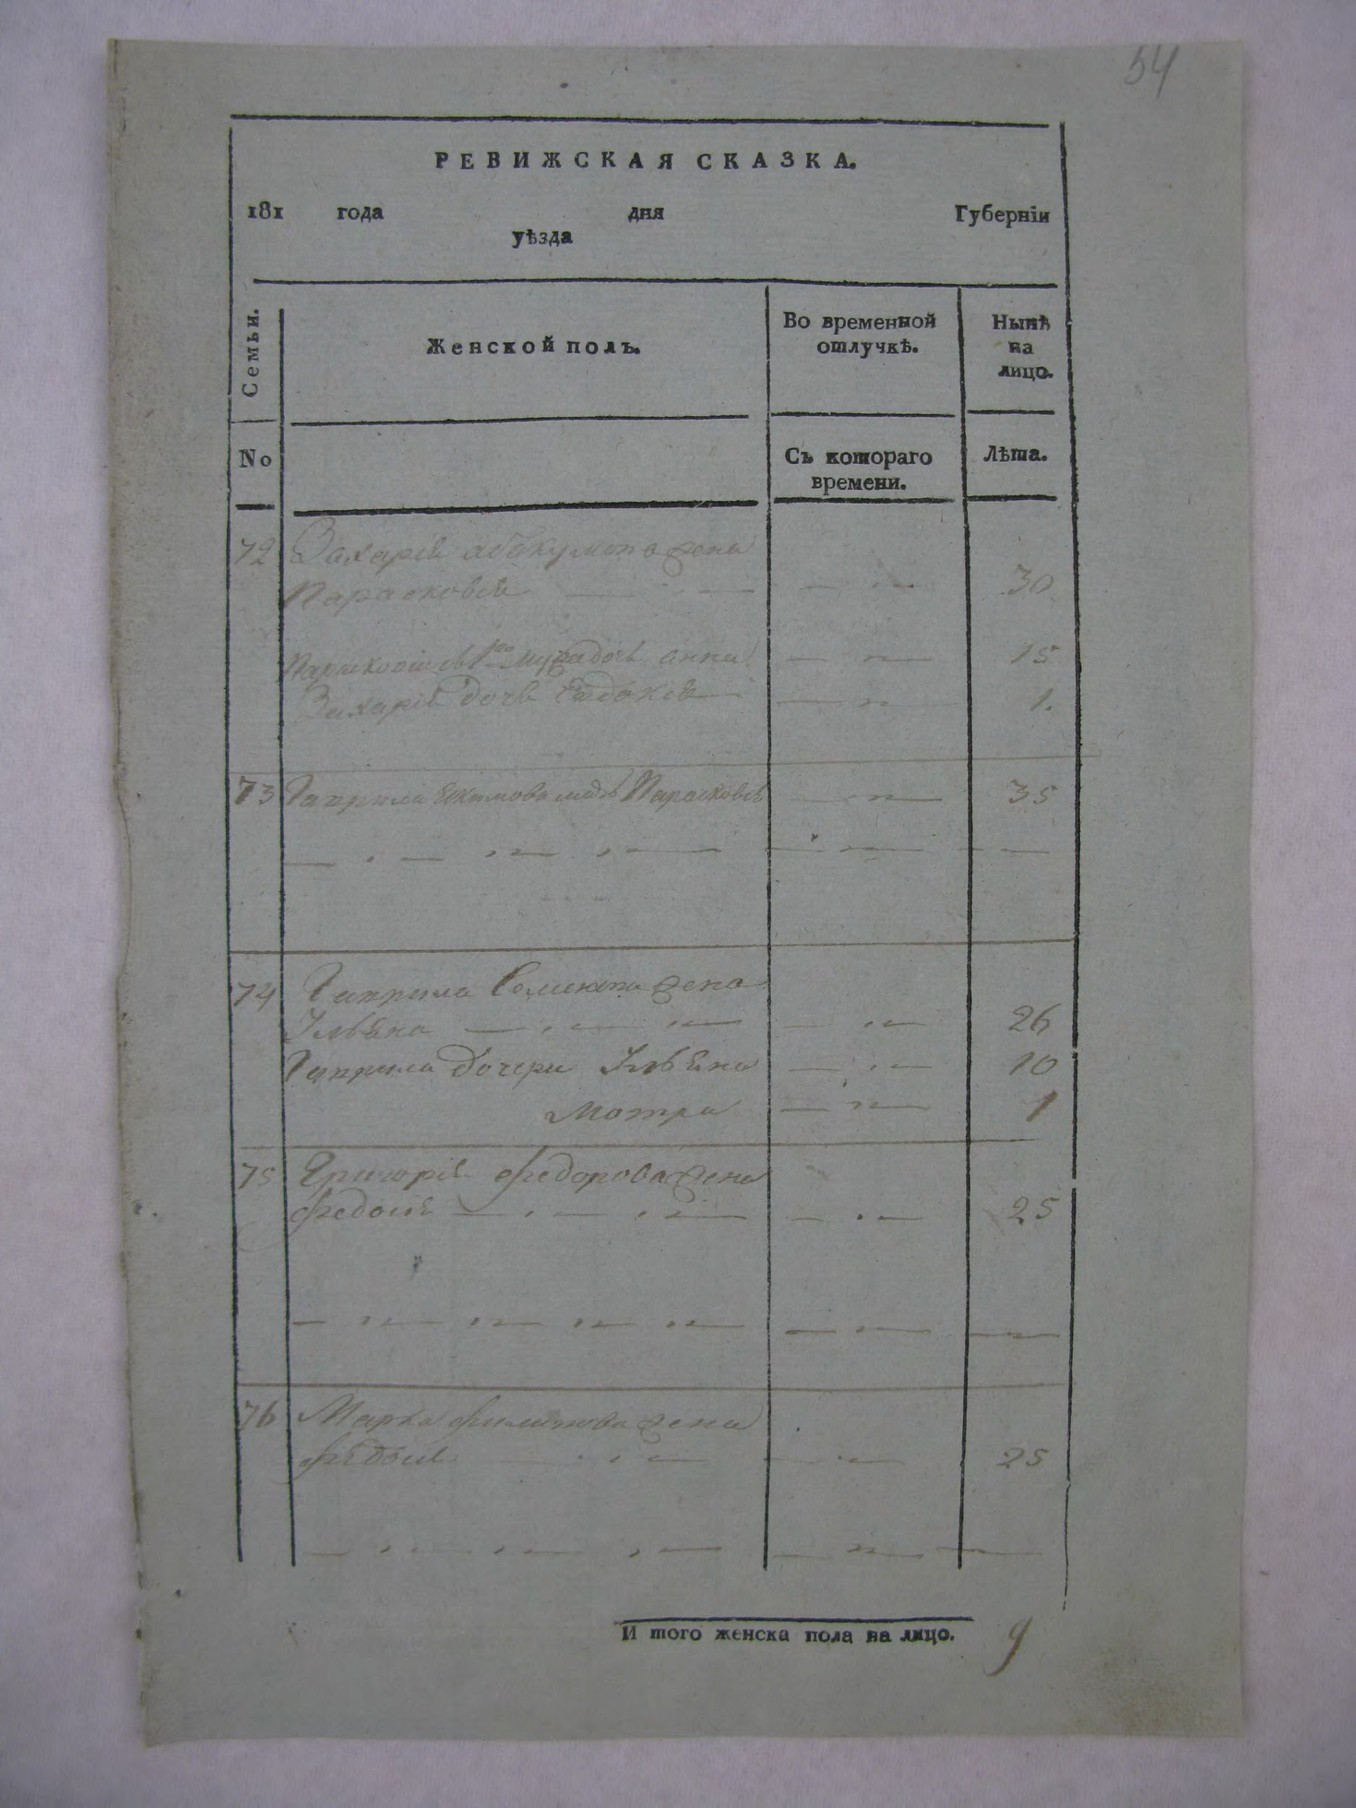 54
РЕВИЖСКАЯ СКАЗКА.
181 года дня Губернїи
уѣзда
Семьи. Женской полъ. Во временной отлучкѣ. Нынѣ на лицо.
No Съ котораго времени. Лѣта.
72 Захарія абакумова жена
Парасковія 30
дочь анна 15
Захарія дочь Евдокія 1.
73 Гаврила Екимова мать Парасковія 35
74 Гаврила жена
Ульяна 26
Гаврила дочери Ульяна 10
Мотра 1
75 Григорія Федорова жена
Федосія 25
76 Марка Филипова жена
Федосія 25
И того женска пола на лицо. 9